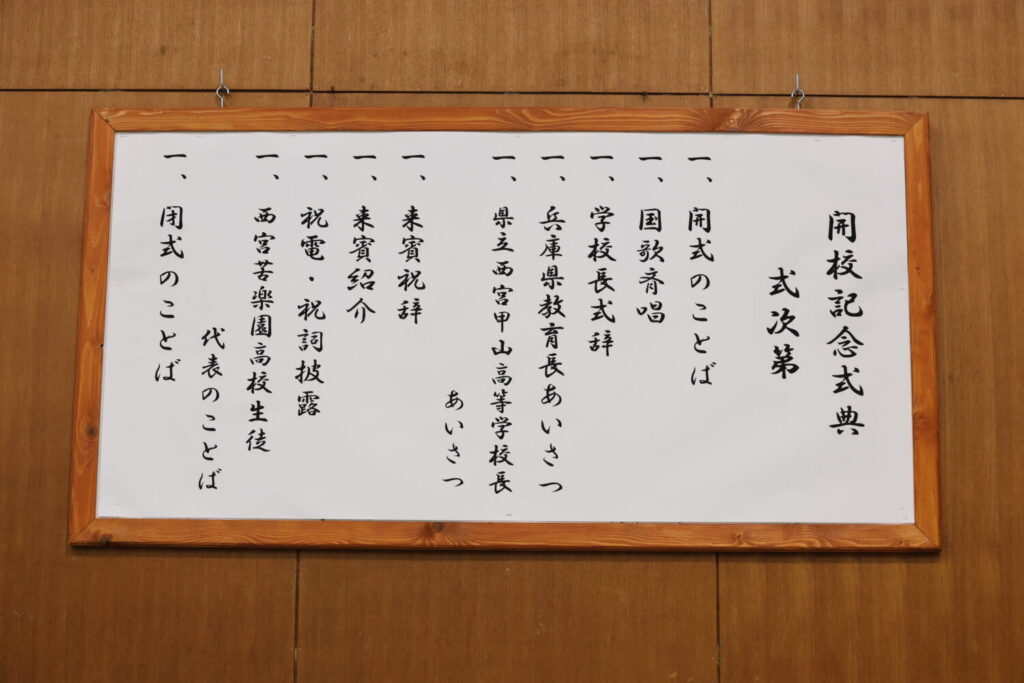 開校記念式典
式次第
一、開式のことば
一、国歌斉唱
一、学校長式辞
一、兵庫県教育長あいさつ
一、県立西宮甲山高等学校長
あいさつ
一、来賓祝辞
一、来賓紹介
一、祝電・祝詞披露
一、西宮苦楽園高校生徒
代表のことば
一、閉式のことば